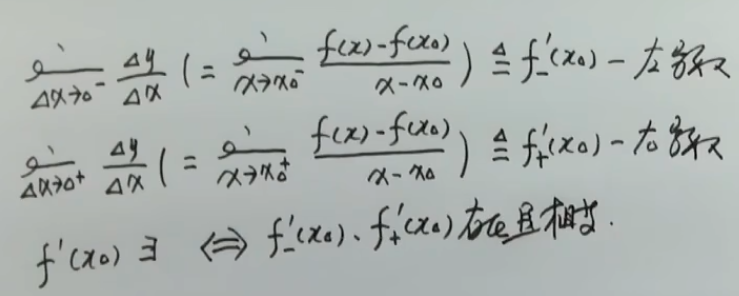 lim Δx→0⁻ Δy/Δx (= lim x→x₀⁻ (f(x)-f(x₀))/(x-x₀)) ≜ f₋'(x₀) - 左导数
lim Δx→0⁺ Δy/Δx (= lim x→x₀⁺ (f(x)-f(x₀))/(x-x₀)) ≜ f₊'(x₀) - 右导数
f'(x₀) ∃ ⇔ f₋'(x₀)、f₊'(x₀) 存在且相等.